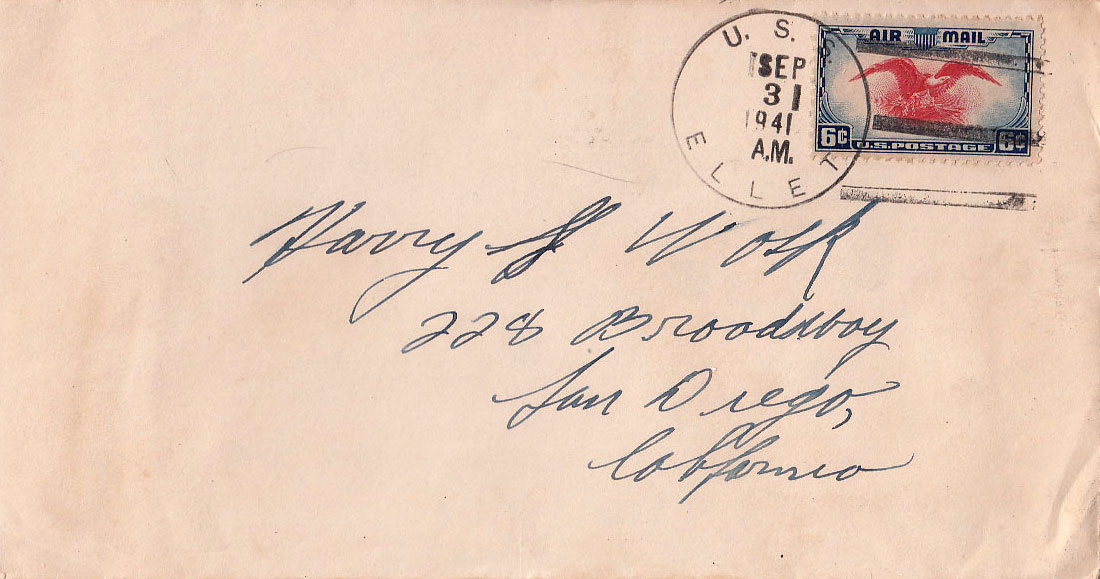 U. S. S.
SEP
3
1941
A.M.
ELLET
AIR MAIL
6¢ U.S.POSTAGE 6¢
Harry
228 Broadway
San Diego,
California